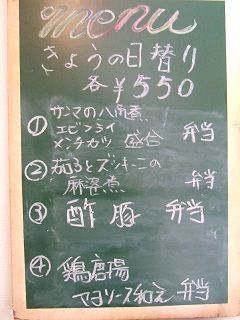 menu
きょうの日替り
各¥550
① サンマの八角煮
エビフライ
メンチカツ 盛合 弁当
② 茄子とズッキーニの
麻婆煮 弁当
③ 酢豚 弁当
④ 鶏唐揚
マヨソース和え 弁当